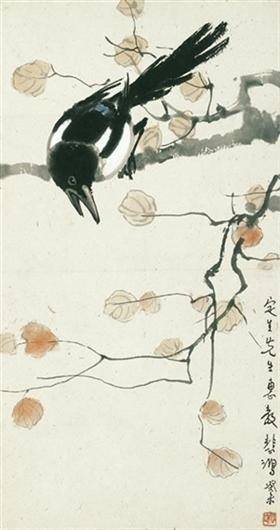 定生先生惠教悲鴻